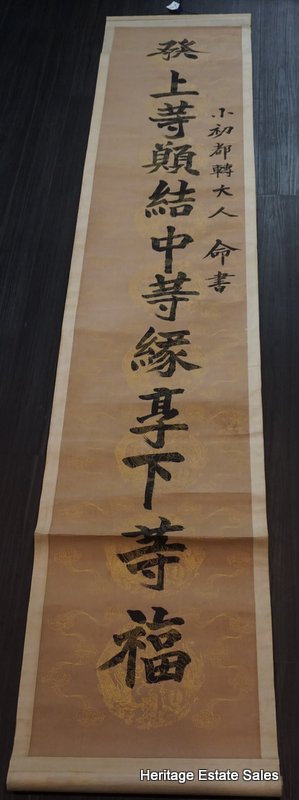 小初都轉大人 命書
發上荨願結中荨緣享下荨福
Heritage Estate Sales